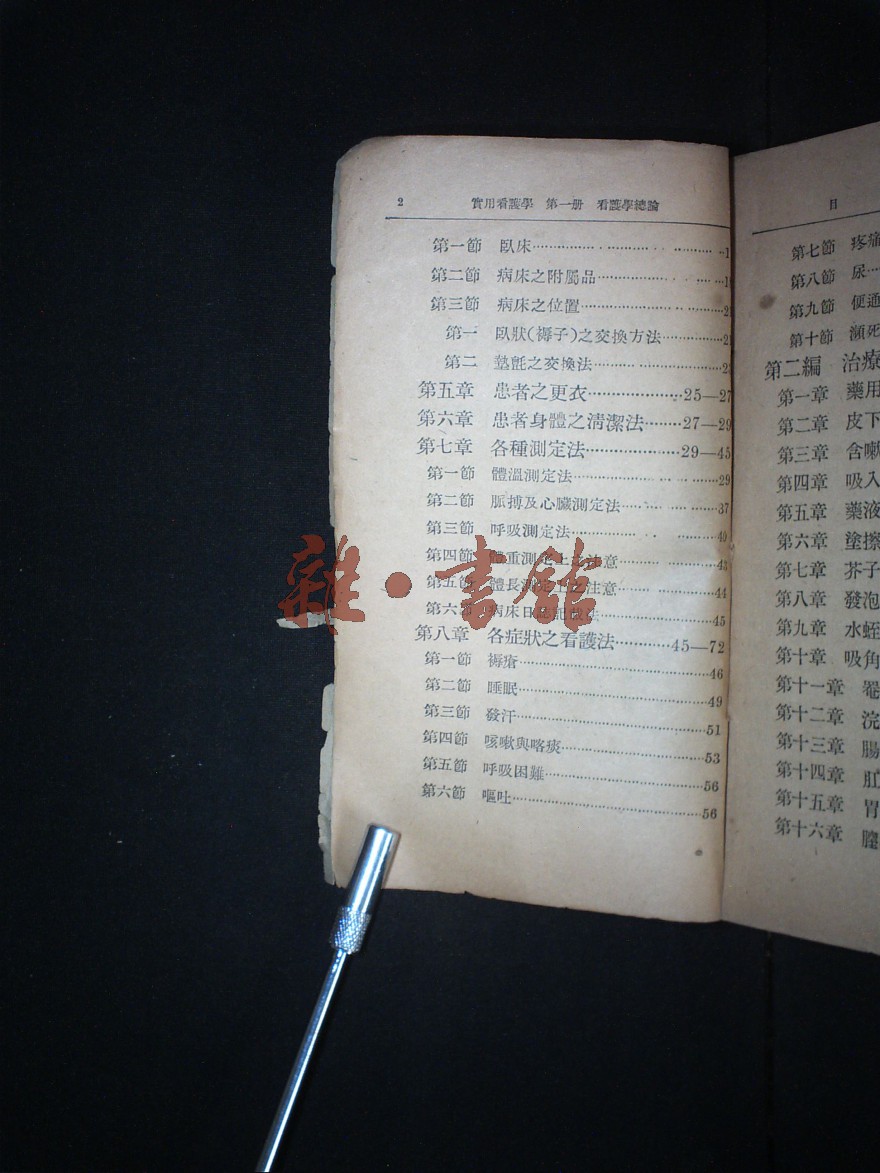 2 實用看護學 第一册 看護學總論
第一節 臥床
第二節 病床之附屬品
第三節 病床之位置
第一 臥狀(褥子)之交換方法
第二 墊氈之交換法
第五章 患者之更衣 25—27
第六章 患者身體之淸潔法 27—29
第七章 各種測定法 29—45
第一節 體溫測定法 29
第二節 脈搏及心臟測定法 37
第三節 呼吸測定法 40
第四節 體重測定上之注意 43
第五節 體長測定上之注意 44
第六節 病床日誌記載法 45
第八章 各症狀之看護法 45—72
第一節 褥瘡 46
第二節 睡眠 49
第三節 發汗 51
第四節 咳嗽與喀痰 53
第五節 呼吸困難 56
第六節 嘔吐 56
目
第七節 疼痛
第八節 尿
第九節 便通
第十節 瀕死
第二編 治療
第一章 藥用
第二章 皮下
第三章 含嗽
第四章 吸入
第五章 藥液
第六章 塗擦
第七章 芥子
第八章 發泡
第九章 水蛭
第十章 吸角
第十一章 罨
第十二章 浣
第十三章 腸
第十四章 肛
第十五章 胃
第十六章
雜·書館